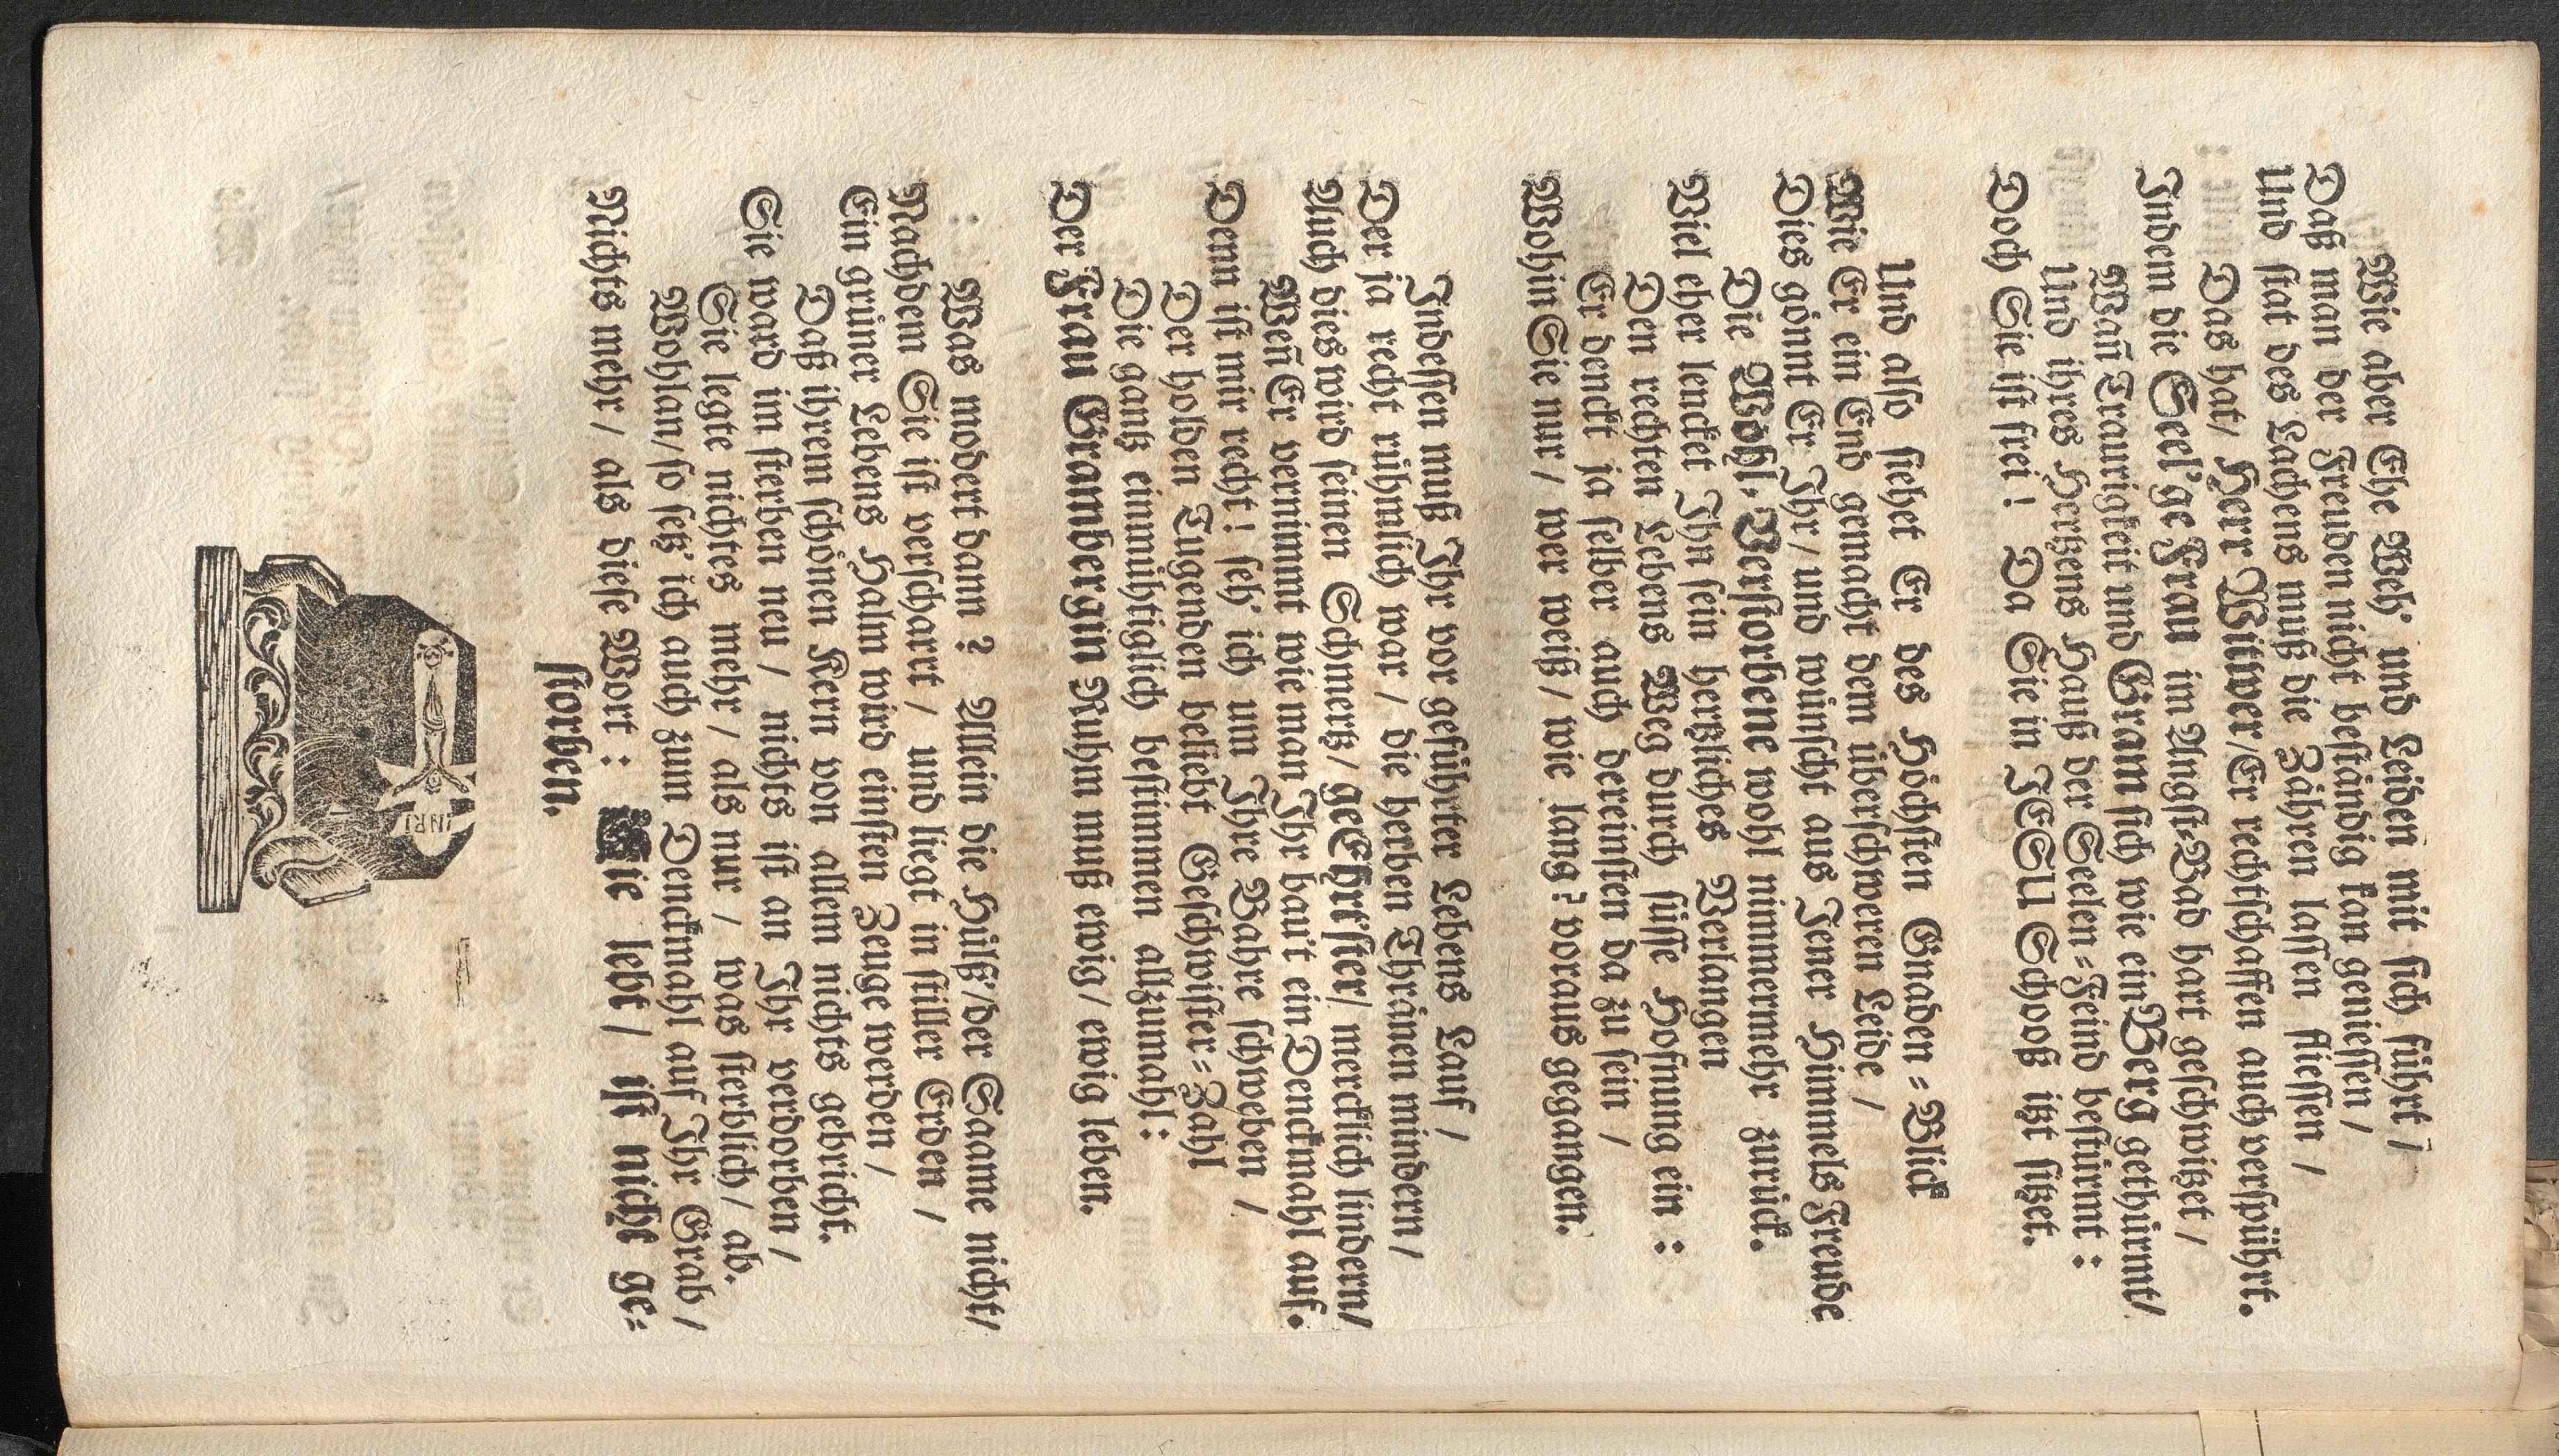 Wie aber Ehe Weh' und Leiden mit sich führt /
Daß man der Freuden nicht beständig kan geniessen /
Und stat des Lachens muß die Zähren lassen fliessen /
Das hat / Herr Witwer / Er rechtschaffen auch verspührt.
Indem die Seel'ge Frau im Angst-Bad hart geschwitzet /
Wañ Traurigkeit und Gram sich wie ein Berg gethürmt /
Und ihres Hertzens Hauß der Seelen-Feind bestürmt :
Doch Sie ist frei ! Da Sie in JESU Schooß itzt sitzet.
Und also siehet Er des Höchsten Gnaden-Blick
Wie Er ein End gemacht dem überschweren Leide /
Dies gönnt Er Ihr / und wünscht aus Jener Himmels Freude
Die Wohl-Verstorbene wohl nimmermehr zurück.
Viel eher lencket Ihn sein hertzliches Verlangen
Den rechten Lebens Weg durch süsse Hofnung ein :
Er denckt ja selber auch dereinsten da zu sein /
Wohin Sie nur / wer weiß / wie lang? voraus gegangen.
Indessen muß Ihr vor geführter Lebens Lauf /
Der ja recht rühmlich war / die herben Thränen mindern /
Auch dies wird seinen Schmertz / geEhrtster / mercklich lindern /
Weñ Er vernimmt wie man Ihr bau't ein Denckmahl auf.
Denn ist mir recht ! seh' ich um Ihre Bahre schweben /
Der holden Tugenden beliebt Geschwister-Zahl
Die gantz einmühtiglich bestimmen allzumahl :
Der Frau Grambergin Ruhm muß ewig / ewig leben.
Was modert dann ? Allein die Hülß' / der Saame nicht /
Nachdem Sie ist verscharrt / und liegt in stiller Erden /
Ein grüner Lebens Halm wird einsten Zeuge werden /
Daß ihrem schönen Kern von allem nichts gebricht.
Sie ward im sterben neu / nichts ist an Ihr verdorben /
Sie legte nichtes mehr / als nur / was sterblich / ab.
Wohlan / so setz' ich auch zum Denckmahl auf Ihr Grab /
Nichts mehr / als diese Wort : Sie lebt / ist nicht ge=
storben.
INRI